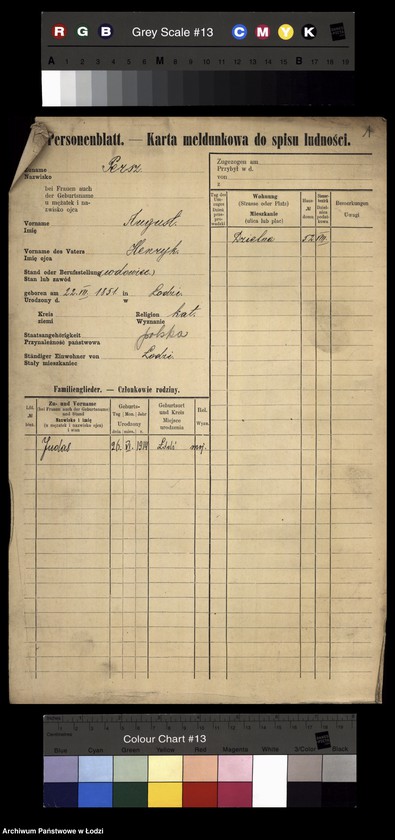 R G B Grey Scale #13 C M Y K
A 1 2 3 4 5 6 M 8 9 10 11 12 13 14 15 B 17 18 19
Personenblatt. — Karta meldunkowa do spisu ludności.
Zuname
Nazwisko
Persz
bei Frauen auch
der Geburtsname
u mężatek i na-
zwisko ojca
Vorname
Imię
August
Vorname des Vaters
Imię ojca
Henryk
Stand oder Berufsstellung (wdowiec)
Stan lub zawód
geboren am 22. VIII. 1851. in Łodzi
Urodzony d. w
Kreis
ziemi
Religion
Wyznanie
kat.
Staatsangehörigkeit
Przynależność państwowa
polska
Ständiger Einwohner von
Stały mieszkaniec
Łodzi
Zugezogen am
Przybył w d.
von
z
Wohnung
(Strasse oder Platz)
Mieszkanie
(ulica lub plac)
Haus
№
domu
Bemerkungen
Uwagi
Dzielna 52 VIII
Familienglieder. — Członkowie rodziny.
Zu- und Vorname
(bei Frauen auch der Geburtsname)
und Stand
Nazwisko i imię
(u mężatek i nazwisko ojca)
i stan
Geburts-
Tag Mon. Jahr
Urodzony
dnia mies. r.
Geburtsort
und Kreis
Miejsce
urodzenia
Rel.
Wyzn.
Judas 26 VI. 1914 Łódź moj.
Colour Chart #13
Blue Cyan Green Yellow Red Magenta White 3/Color Black
Archiwum Państwowe w Łodzi